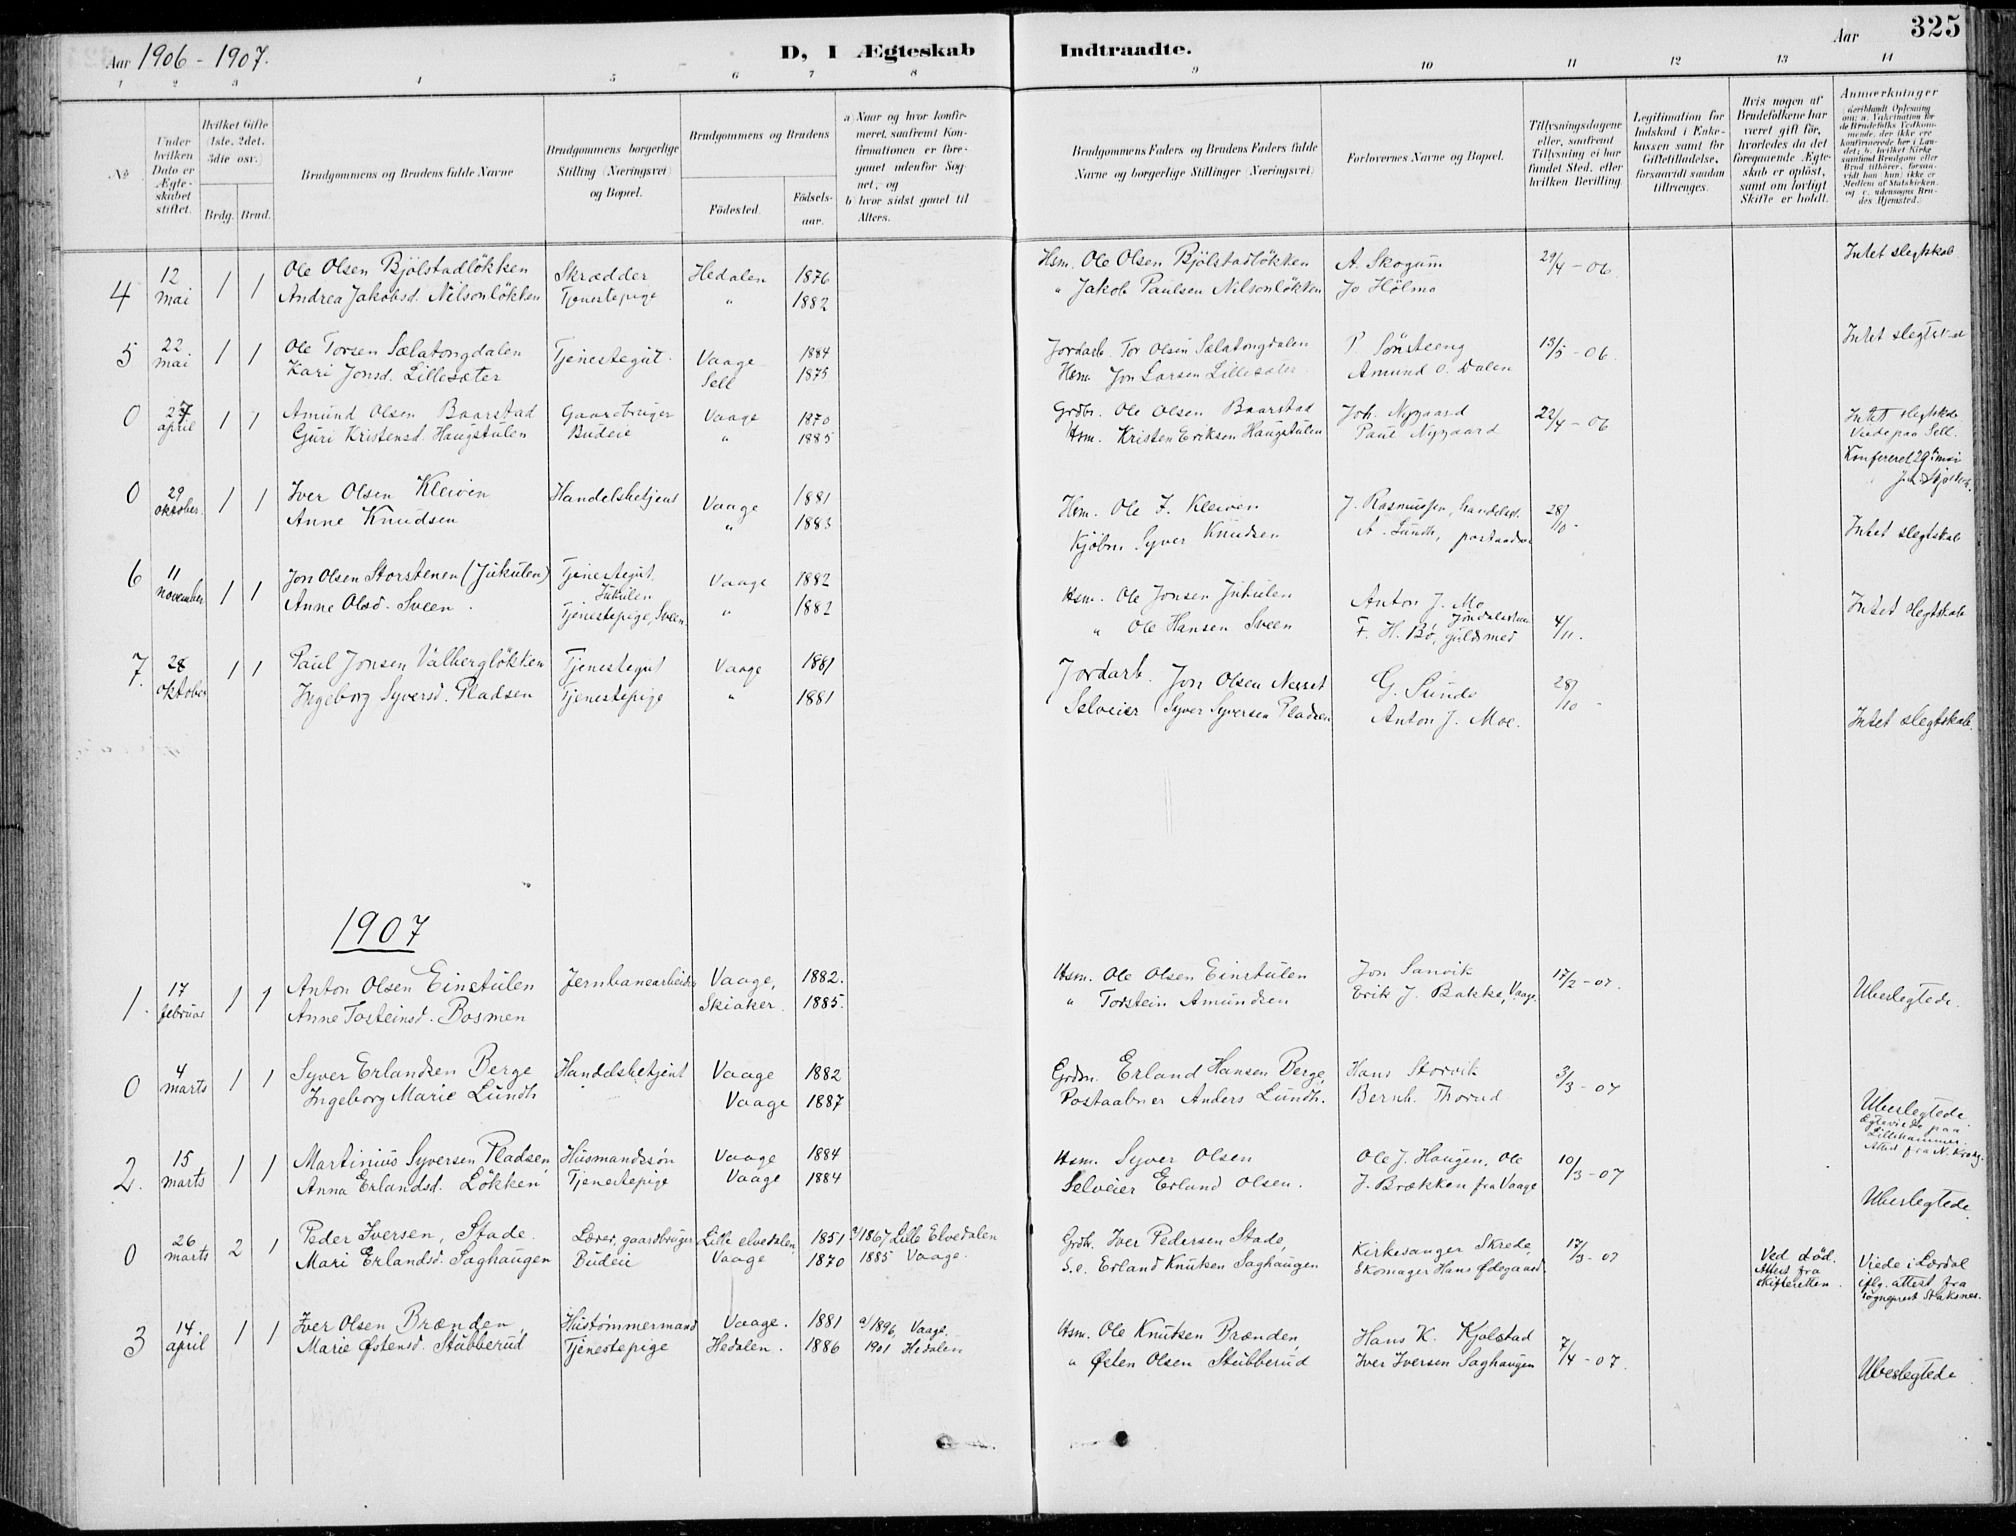 325
Aar 1906 - 1907.
D, I Ægteskab
Indtraadte.
Aar
1 2 3 4 5 6 7 8 9 10 11 12 13 14
No
Under hvilken Dato er Ægteskabet stiftet.
Hvilket Gifte (1ste, 2det, 3die osv.)
Brdg. Brud.
Brudgommens og Brudens fulde Navne
Brudgommens borgerlige Stilling (Næringsvei) og Bopæl.
Brudgommens og Brudens
Fødested.
Fødselsaar.
a) Naar og hvor konfirmeret, saafremt Konfirmationen er foregaaet udenfor Sognet, og
b) hvor sidst gaaet til Alters.
Brudgommens Faders og Brudens Faders fulde Navne og borgerlige Stillinger (Næringsvei)
Forlovernes Navne og Bopæl.
Tillysningsdagene eller, saafremt Tillysning ei har fundet Sted, efter hvilken Bevilling.
Legitimation for Indskud i Enkekassen samt for Giftetilladelse, forsaavidt saadan tiltrænges.
Hvis nogen af Brudefolkene har været gift før, hvorledes da det foregaaende Ægteskab er opløst, samt om lovligt Skifte er holdt.
Anmærkninger
4 12 mai 1 1 Ole Olsen Bjölstadlökken Skrædder Hedalen 1876 Hsm. Ole Olsen Bjölstadlökken A. Skogum 29/4 - 06 Intet slegtskab
Andrea Jakobsd. Nilsonlökken Tjenestepige " 1882 " Jakob Paulsen Nilsonlökken Jo Hölmo
5 22 mai 1 1 Ole Torsen Sælatongdalen Tjenestegut Vaage 1884 Jordarb. Tor Olsen Sælatongdalen P. Sönsteeng 13/5 - 06.
Kari Jonsd. Lillesæter Sell 1875 Hsm. Jon Larsen Lillesæter Amund O. Dalen
0 april 1 1 Amund Olsen Baarstad Gaardbruger Vaage 1870 Grdbr. Ole Olsen Baarstad Joh. Nygaard 22/4 - 06
Guri Kristensd. Haugstulen Budeie " 1885 Hsm. Kristen Eriksen Haugstulen Paul Nygaard
Viede paa Sell.
0 29 oktober. 1 1 Iver Olsen Kleiven Handelsbetjent Vaage 1881 Hsm. Ole F. Kleiven J. Rasmussen, 28/10 - Intet slegtskab
Anne Knudsen " 1883 Kjöbm. Syver Knudsen A. Lundh,
6 11 november 1 1 Jon Olsen Storstenen (Jukulen) Tjenestegut, Jukulen Vaage 1882 Hsm. Ole Jonsen Jukulen Anton J. Mo, Intet slegtskab
Anne Olsd. Sveen. Tjenestepige, Sveen. " 1882 " Ole Hansen Sveen F. H. Bø, guldsmed 4/11.
7. 28 oktober 1 1 Paul Jonsen Valberglökken Tjenestegut Vaage 1881 Jordarb. Jon Olsen Nesset G. Sunde 28/10 -
Ingeborg Syversd. Pladsen Tjenestepige " 1881 Selveier Syver Syversen Pladsen Anton J. Moe. Intet slegtskab.
1907
1. 17 februar 1 1 Anton Olsen Einstulen Jernbanearbeider Vaage, 1882. Hsm. Ole Olsen Einstulen Jon Sanvik 17/2 - 07. Ubeslegtede.
Anne Tosteinsd. Bosmen Skiaker. 1885. " Torstein Amundsen Erik J. Bakke, Vaage.
0 4 marts 1 1 Syver Erlandsen Berge Handelsbetjent Vaage 1882 Grdbr. Erland Hansen Berge, Hans Storvik 3/3 - 07
Ingeborg Marie Lundh Vaage 1887 Postaabner Anders Lundh. Bernh. Thorud Ubeslegtede.
Egteviede paa Lillehammer.
2. 15 marts 1 1 Martinius Syversen Pladsen Husmandssön Vaage 1884 Hsm. Syver Olsen Ole J. Haugen, Ole 10/3 - 07
Anna Erlandsd. Lökken Tjenestepige Vaage 1884 Selveier Erland Olsen. J. Brækken fra Vaage Ubeslegtede.
0 26 marts 2 1 Peder Iversen, Stade. Lærer, gaardbruger Lille elvedalen 1851 a/1867 Lille Elvedalen Grdbr. Iver Pedersen Stade, Kirkesanger Skrede, 17/3 - 07 Ved död. Viede i Lærdal
Mari Erlandsd. Saghaugen Budeie Vaage 1870 1885 Vaage. S.e. Erland Knutsen Saghaugen Skomager Hans Ødegaard. Attest fra skifteretten. iflg. attest fra
3 14 april 1 1 Iver Olsen Brænden, Hustömmermand Vaage. 1881 a/1896, Vaage. Hsm. Ole Knutsen Brænden, Hans K. Kjolstad 7/4 - 07.
Marie Østensd. Stubberud Tjenestepige Hedalen. 1886 1901 Hedalen " Østen Olsen Stubberud Iver Iversen Saghaugen Ubeslegtede